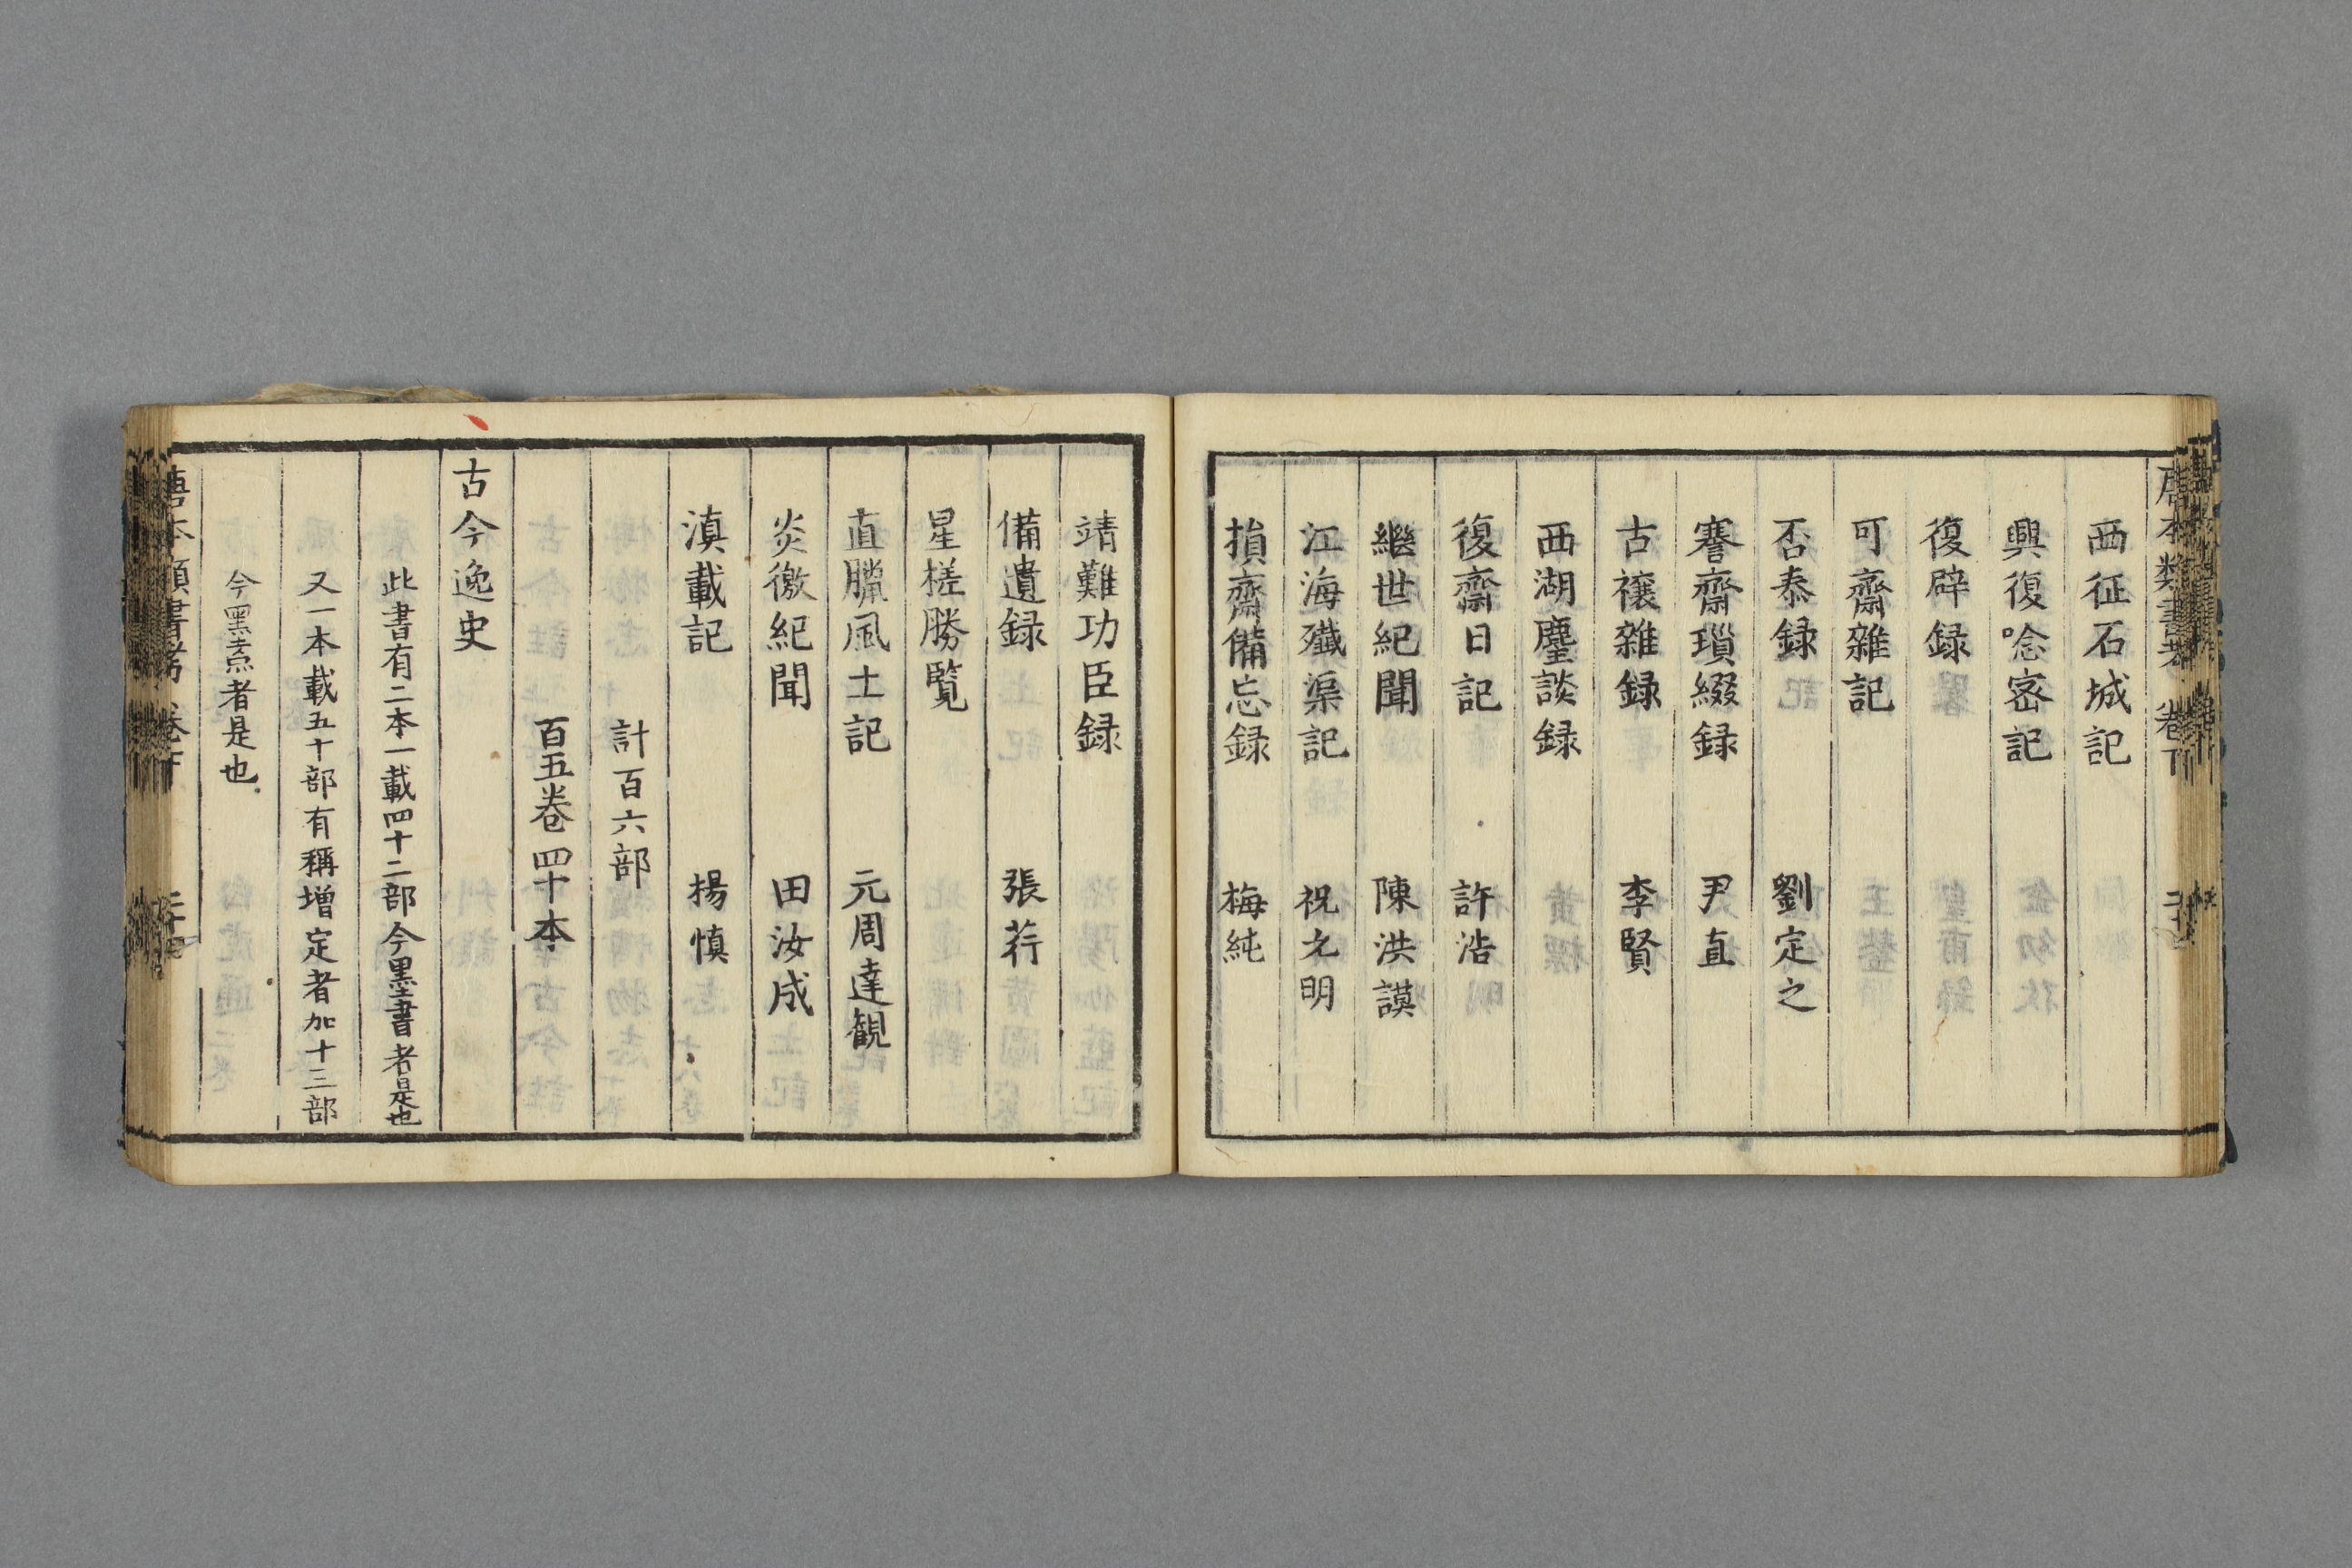 唐本類書考 卷下
西征石城記
興復哈密記
復辟録
可齋雜記
否泰録 劉定之
謇齋瑣綴録 尹直
古穰雜録 李賢
西湖麈談録
復齋日記 許浩
繼世紀聞 陳洪謨
江海殲渠記 祝允明
損齋備忘録 梅純
靖難功臣録
備遺録 張芹
星槎勝覧
直臘風土記 元周達観
炎徼紀聞 田汝成
滇載記 揚慎
計百六部
百五巻 四十本
古今逸史
此書有二本一載四十二部今墨書者是也
又一本載五十部有稱増定者加十三部
今黑点者是也
唐本類書考 卷下